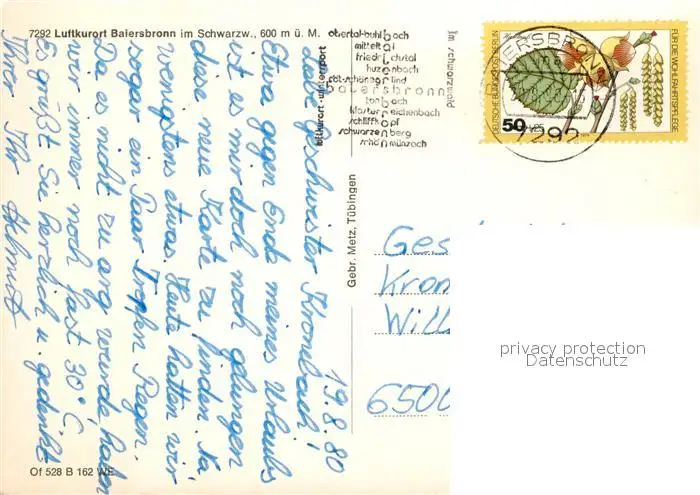 7292 Luftkurort Baiersbronn im Schwarzw., 600 m ü. M.
19.8.80
Liebe Geschwister Krombach!
Etwa gegen Ende meines Urlaubs
ist es mir doch noch gelungen
diese neue Karte zu finden. Na
wenigstens etwas. Heute hatten wir
sogar ein Paar Tropfen Regen.
Da es nicht zu arg wurde haben
wir immer noch fast 30°C.
Es grüßt Sie herzlich u. gedenkt
Ihrer Ihr Helmut
Of 528 B 162 WE
Gebr. Metz, Tübingen
luftkurort · wintersport
obertal-buhlbach
mitteltal
friedrichstal
huzenbach
röt-schönegründ
baiersbronn
tonbach
klosterreichenbach
schliffkopf
schwarzenberg
schönmünzach
im schwarzwald
BAIERSBRONN
7292
DEUTSCHE BUNDESPOST BERLIN
FÜR DIE WOHLFAHRTSPFLEGE
50
Ges
Kron
Will
6500
privacy protection
Datenschutz